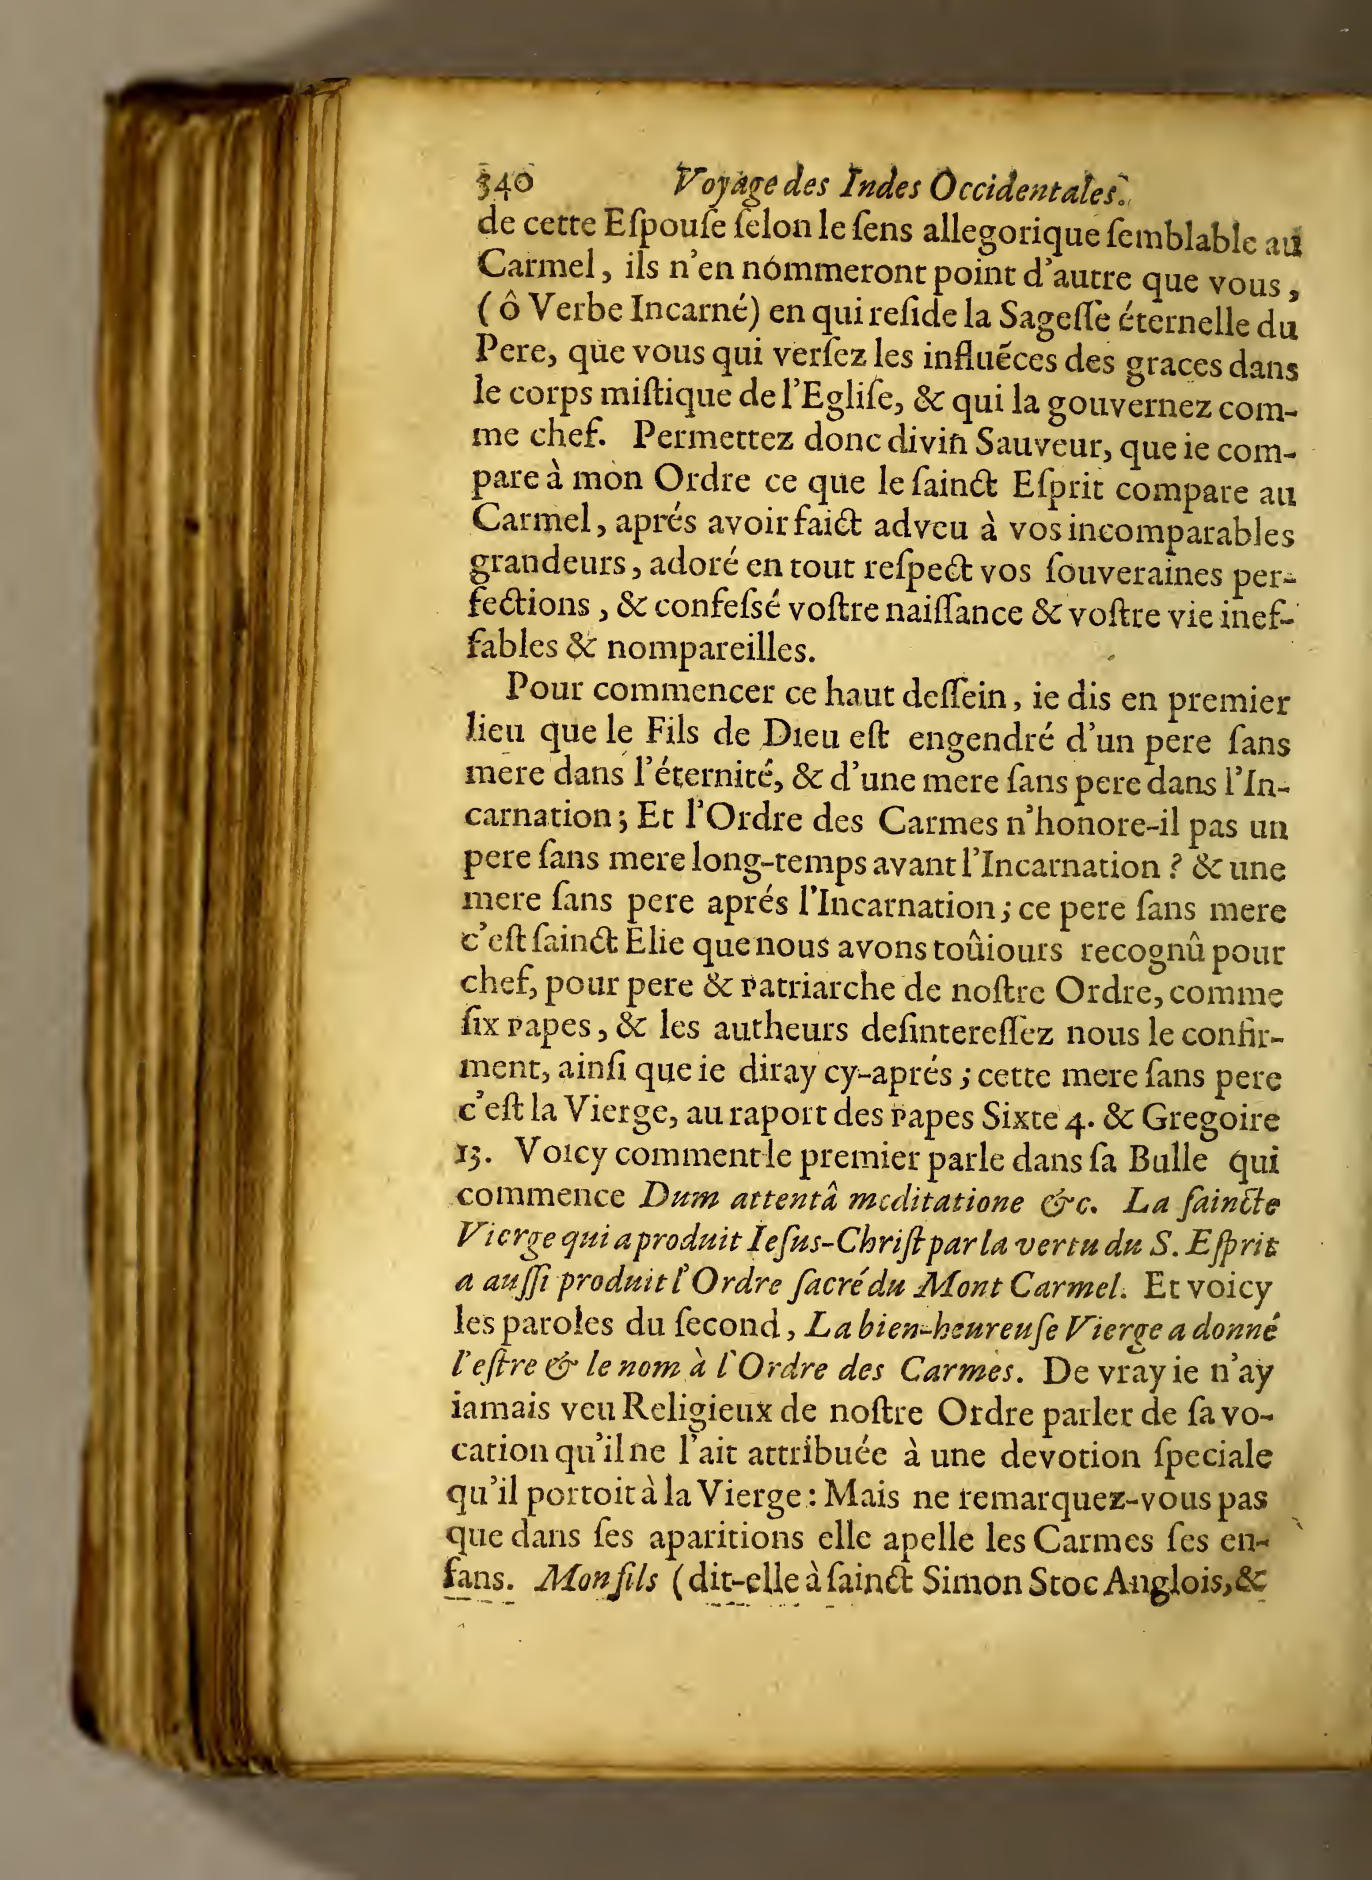 340 Voyage des Indes Occidentales.
de cette Eſpouſe ſelon le ſens allegorique ſemblable au
Carmel, ils n'en nommeront point d'autre que vous,
(ô Verbe Incarné) en qui reſide la Sageſſe éternelle du
Pere, que vous qui verſez les influẽces des graces dans
le corps miſtique de l'Egliſe, & qui la gouvernez com-
me chef. Permettez donc divin Sauveur, que ie com-
pare à mon Ordre ce que le ſainct Eſprit compare au
Carmel, aprés avoir faict adveu à vos incomparables
grandeurs, adoré en tout reſpect vos ſouveraines per-
fections, & confeſsé voſtre naiſſance & voſtre vie inef-
fables & nompareilles.
Pour commencer ce haut deſſein, ie dis en premier
lieu que le Fils de Dieu eſt engendré d'un pere ſans
mere dans l'éternité, & d'une mere ſans pere dans l'In-
carnation; Et l'Ordre des Carmes n'honore-il pas un
pere ſans mere long-temps avant l'Incarnation? & une
mere ſans pere aprés l'Incarnation; ce pere ſans mere
c'eſt ſainct Elie que nous avons toûiours recognû pour
chef, pour pere & Patriarche de noſtre Ordre, comme
ſix Papes, & les autheurs deſintereſſez nous le confir-
ment, ainſi que ie diray cy-aprés; cette mere ſans pere
c'eſt la Vierge, au raport des Papes Sixte 4. & Gregoire
13. Voicy comment le premier parle dans ſa Bulle qui
commence Dum attentâ meditatione &c. La ſaincte
Vierge qui a produit Ieſus-Chriſt par la vertu du S. Eſprit
a auſſi produit l'Ordre ſacré du Mont Carmel. Et voicy
les paroles du ſecond, La bien-heureuſe Vierge a donné
l'eſtre & le nom à l'Ordre des Carmes. De vray ie n'ay
iamais veu Religieux de noſtre Ordre parler de ſa vo-
cation qu'il ne l'ait attribuée à une devotion ſpeciale
qu'il portoit à la Vierge: Mais ne remarquez-vous pas
que dans ſes aparitions elle apelle les Carmes ſes en-
fans. Mon fils (dit-elle à ſainct Simon Stoc Anglois, &